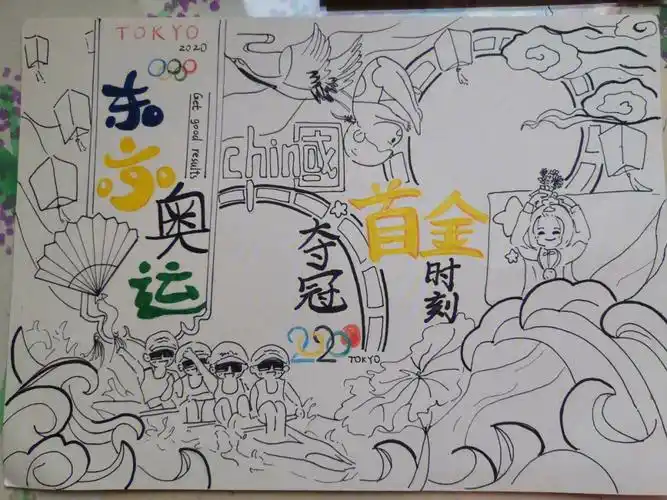 TOKYO
2020
Get good results
东京奥运
chin国
夺冠
首金
时刻
2020
TOKYO